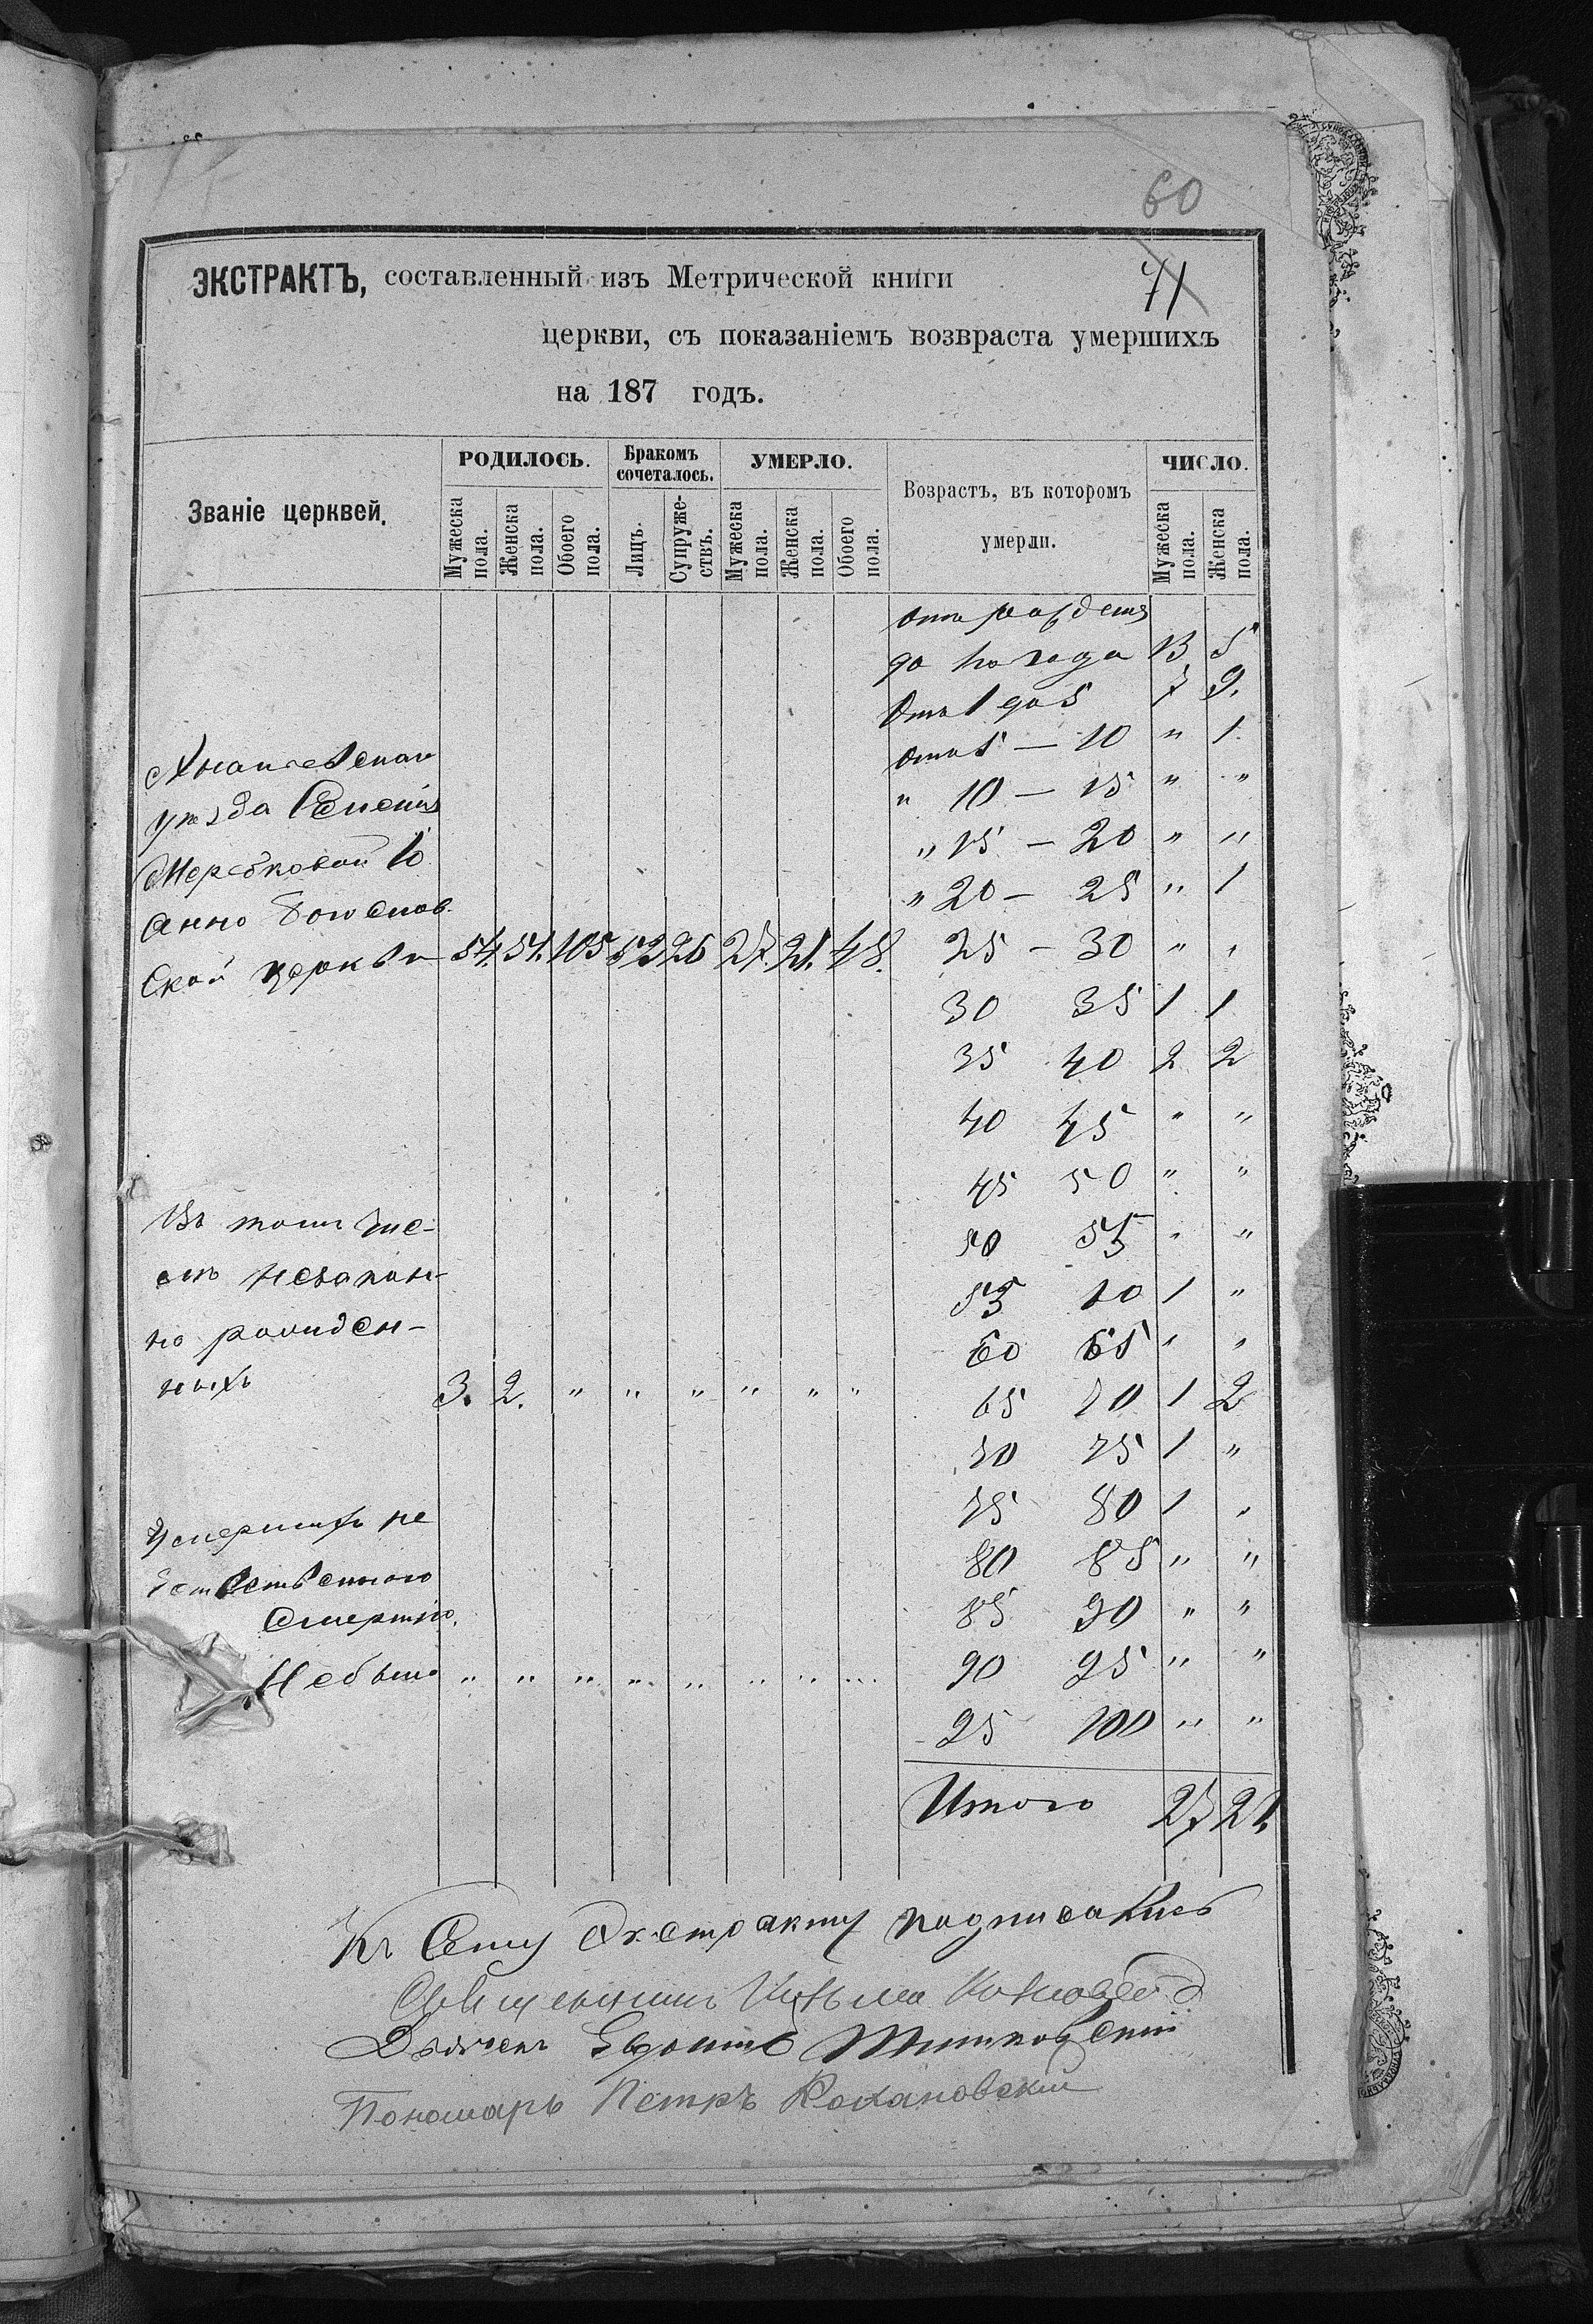 60
71
ЭКСТРАКТЪ, составленный изъ Метрической книги
церкви, съ показаніемъ возвраста умершихъ
на 187 годъ.
Званіе церквей.
РОДИЛОСЬ.
Бракомъ сочеталось.
УМЕРЛО.
Возрастъ, въ которомъ умерли.
ЧИСЛО.
Мужеска пола.
Женска пола.
Обоего пола.
Лицъ.
Супружествъ.
Мужеска пола.
Женска пола.
Обоего пола.
Мужеска пола.
Женска пола.
отъ рожденія
до по года 13 5
Отъ 1 до 5 7 9.
отъ 5 — 10 " 1.
" 10 — 15 " "
" 15 — 20 " "
" 20 — 25 " 1
Ананьевскаго
уѣзда
Ской церкви 54. 51. 105 52 26 27. 21. 48.
25 — 30 " "
30 35 1 1
35 40 2 2
40 45 " "
45 50 " "
50 55 " "
55 60 1 "
60 65 " "
65 70 1 2
70 75 1 "
75 80 1 "
80 85 " "
85 90 " "
90 95 " "
95 100 " "
Итого 27 21.
Въ томъ чи-
слѣ незакон-
но рожден-
ныхъ 3. 2. " " " " " "
Умершихъ не
естественною
Смертію.
Небыло " " " " " " " "
Къ Сему Экстракту подписались
Священникъ
Дьячекъ
Пономарь Петръ